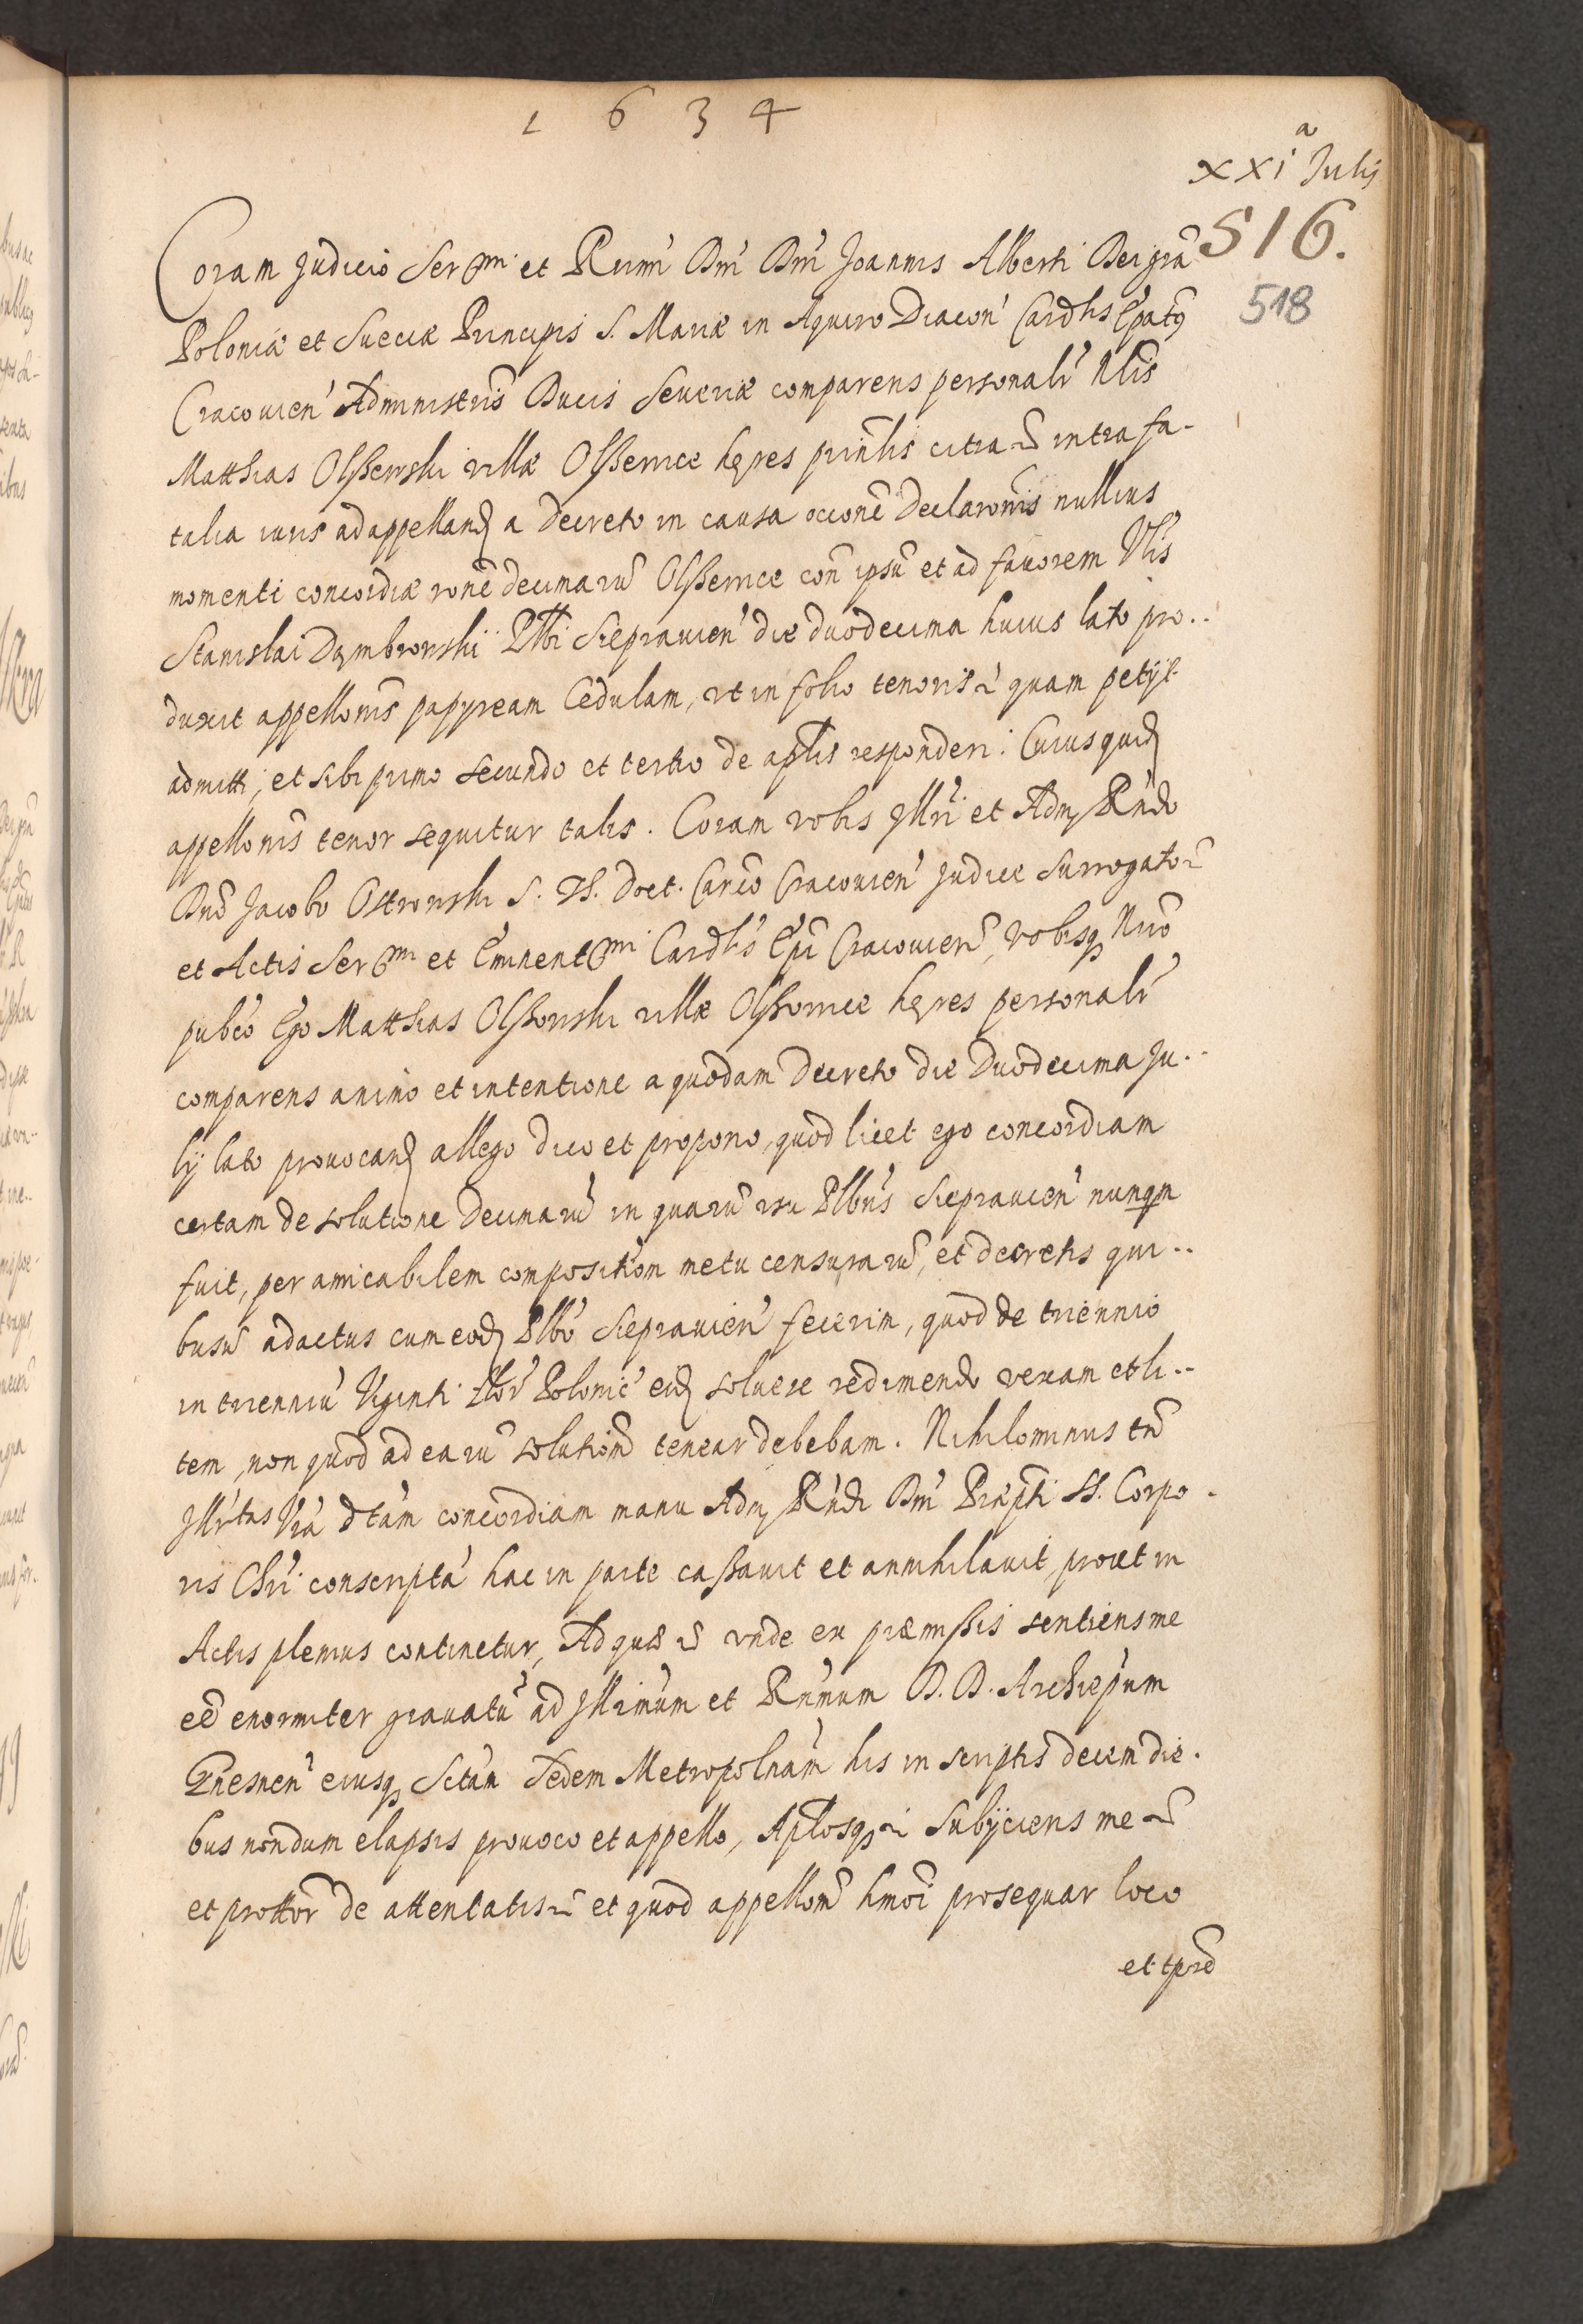 1634
XXIa Julij
516.
518
Coram Judicio Sermi et Rmi Dni Dni Joannis Alberti Dei gra
Poloniæ et Sueciæ Principis S. Mariæ in Aquiro Diacon Cardlis Epatus
Cracouien Administris Ducis Seueriæ comparens personalr Nlis
Matthias Olßewski villæ Olßewice hæres prinlis citra et intra fa-
talia iuris ad appelland a decreto in causa occone declaronis nullius
momenti concordiæ rone decimaru Olßewice con ipsu et ad fauorem Vlis
Stanislai Dąmbrowskii Plbi Siepraucien die duodecima huius lato pro..
duxit appellonis papyream Cedulam, vt in folio tenoris quam petijt
admitti, et sibi primo secundo et tertio de aplis responderi: Cuiusquid
appellonis tenor sequitur talis. Coram vobis Jllri et Adm Rndo
Dno Jacobo Ostrowski S. Th. Doct. Canco Cracouien Judice Surrogato
et Actis Sermi et Eminentmi Cardlis Epi Cracouien, vobisq Nrio
pubco Ego Matthias Olßowski villæ Olßowice hæres personalr
comparens animo et intentione a quodam Decreto die Duodecima Ju..
lij lato prouocand allego dico et propono, quod licet ego concordiam
certam de solutione Decimaru in quaru vsu Plbnus Siepraucien nunqm
fuit, per amicabilem composition metu censuraru, et decretis qui..
busu adactus cum eod Plbo Siepraucien fecerim, quod de triennio
in trienniu Viginti flor Polonic eid soluere redimendo vexam et li..
tem, non quod ad earu solution tenear debebam. Nihilominus tn
Jllrtas Vra dtam concordiam manu Adm Rndi Dni Præpti SS. Corpo.
ris Chri conscripta hac in parte caßauit et annihilauit, prout in
Actis plenius continetur, Ad quæ vnde ex præmißis sentiens me
ee enormiter grauatu ad Jllrimum et Rmum D. D. Archiepum
Gnesnen eiusq Sctam Sedem Metropolnam his in scriptis decem die.
bus nondum elapsis prouoco et appello, Aplosq Subijciens me
et prottor de attentatis et quod appellom hmoi prosequar loco
et tpre